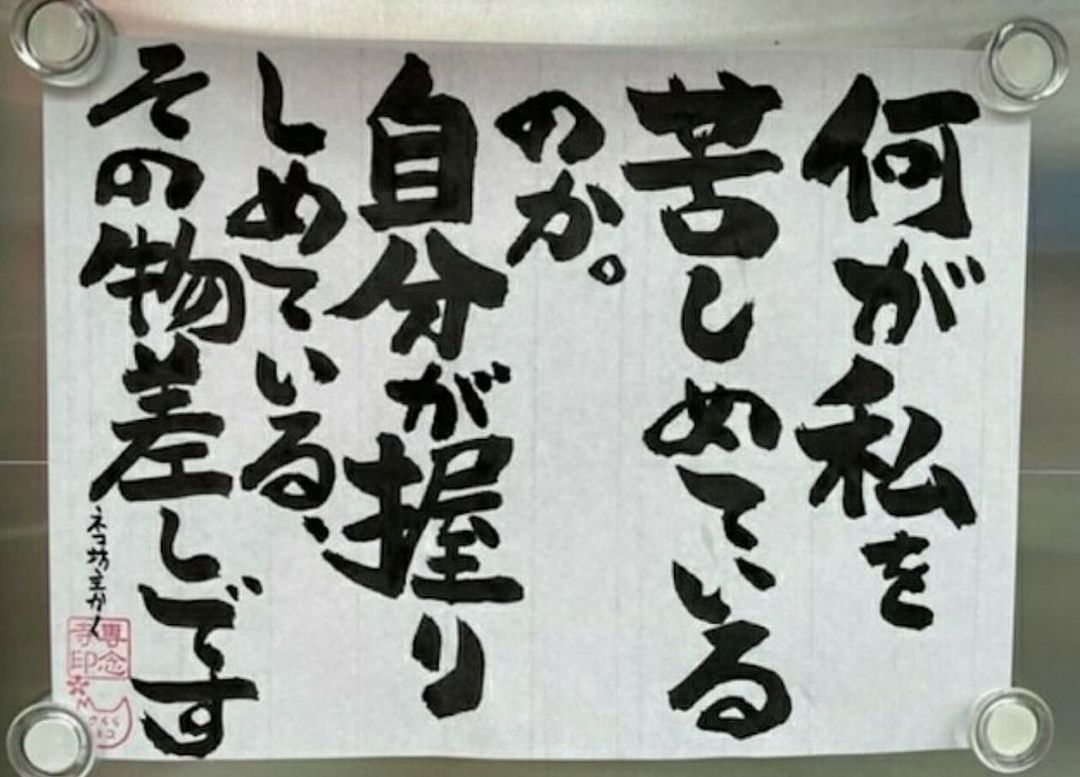 何が私を
苦しめている
のか。
自分が握り
しめている、
その物差しです
ネコ坊主かく
専念
寺印